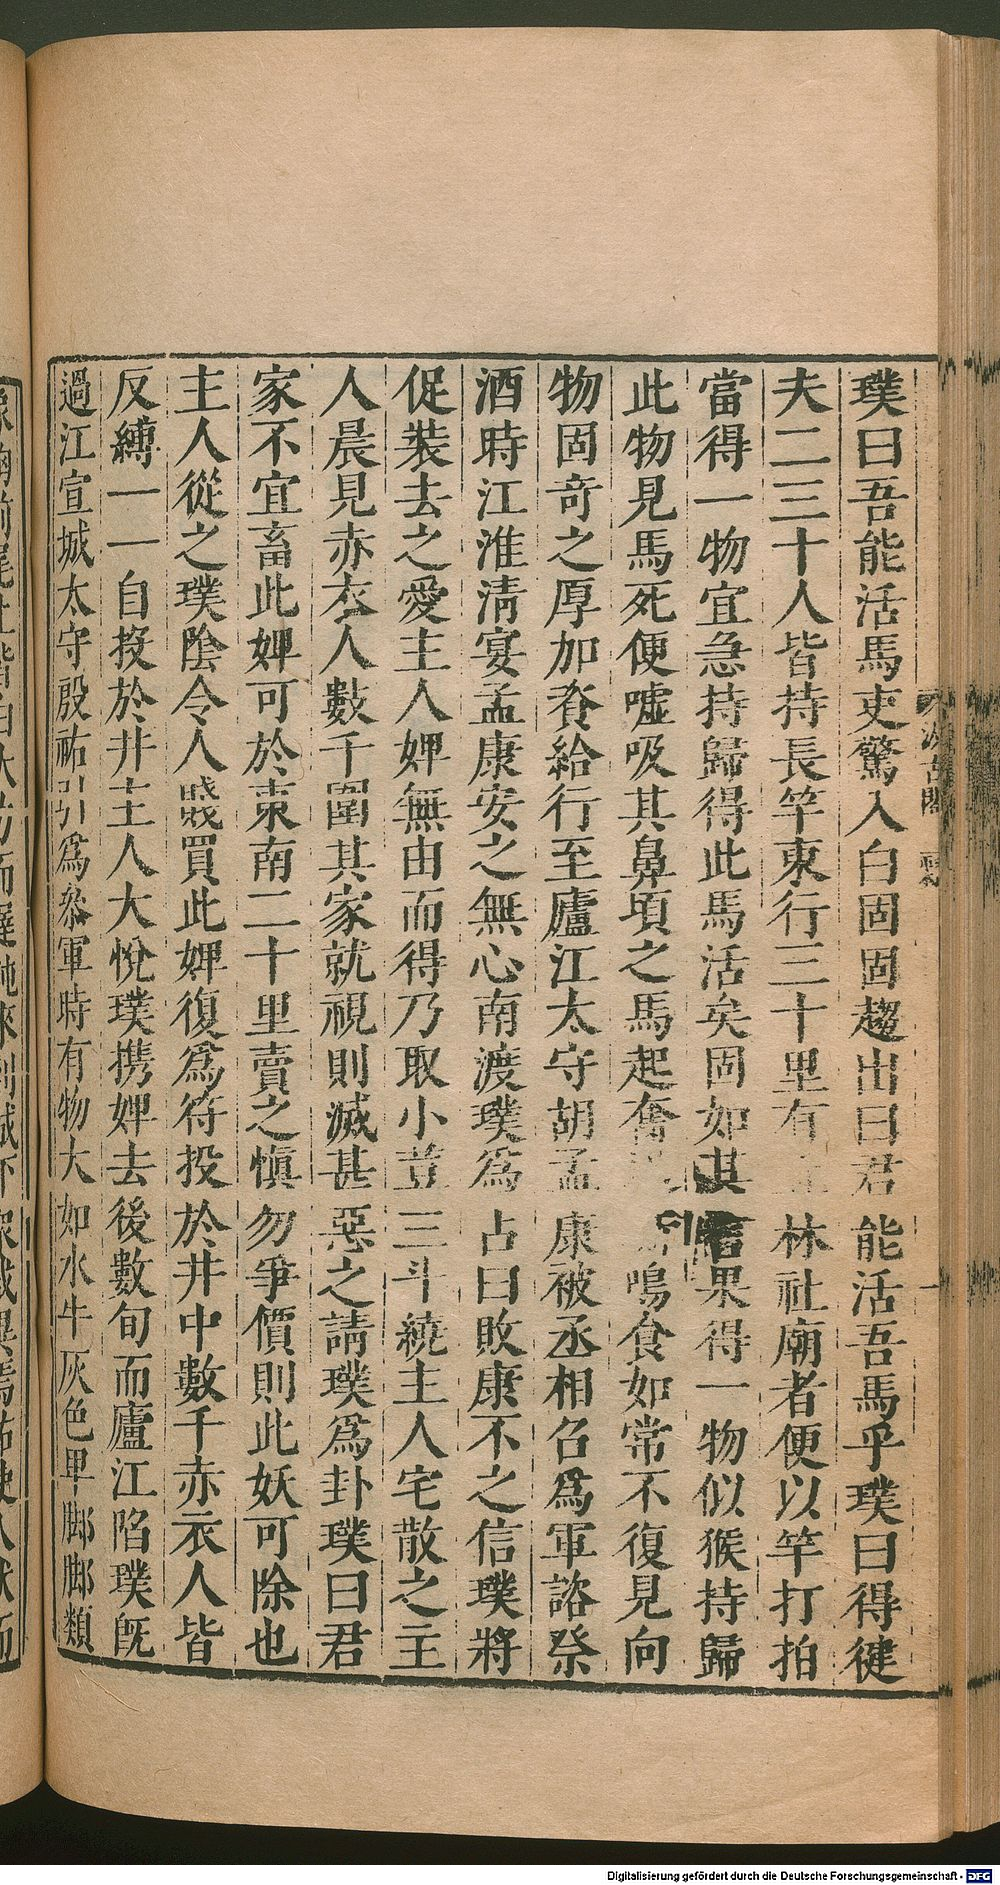 璞曰吾能活馬吏驚入白固固趨出曰君能活吾馬乎璞曰得健
夫二三十人皆持長竿東行三十里有林社廟者便以竿打拍
當得一物宜急持歸得此馬活矣固如其言果得一物似猴持歸
此物見馬死便噓吸其鼻頃之馬起奮鳴食如常不復見向
物固奇之厚加資給行至廬江太守胡孟康被丞相召爲軍諮祭
酒時江淮清宴孟康安之無心南渡璞爲占曰敗康不之信璞將
促裝去之愛主人婢無由而得乃取小荳三斗繞主人宅散之主
人晨見赤衣人數千圍其家就視則滅甚惡之請璞爲卦璞曰君
家不宜畜此婢可於東南二十里賣之愼勿爭價則此妖可除也
主人從之璞陰令人賤買此婢復爲符投於井中數千赤衣人皆
反縛一一自投於井主人大悅璞携婢去後數旬而廬江陷璞旣
過江宣城太守殷祐引爲叅軍時有物大如水牛灰色卑脚脚類
汲古閣
Digitalisierung gefördert durch die Deutsche Forschungsgemeinschaft - DFG